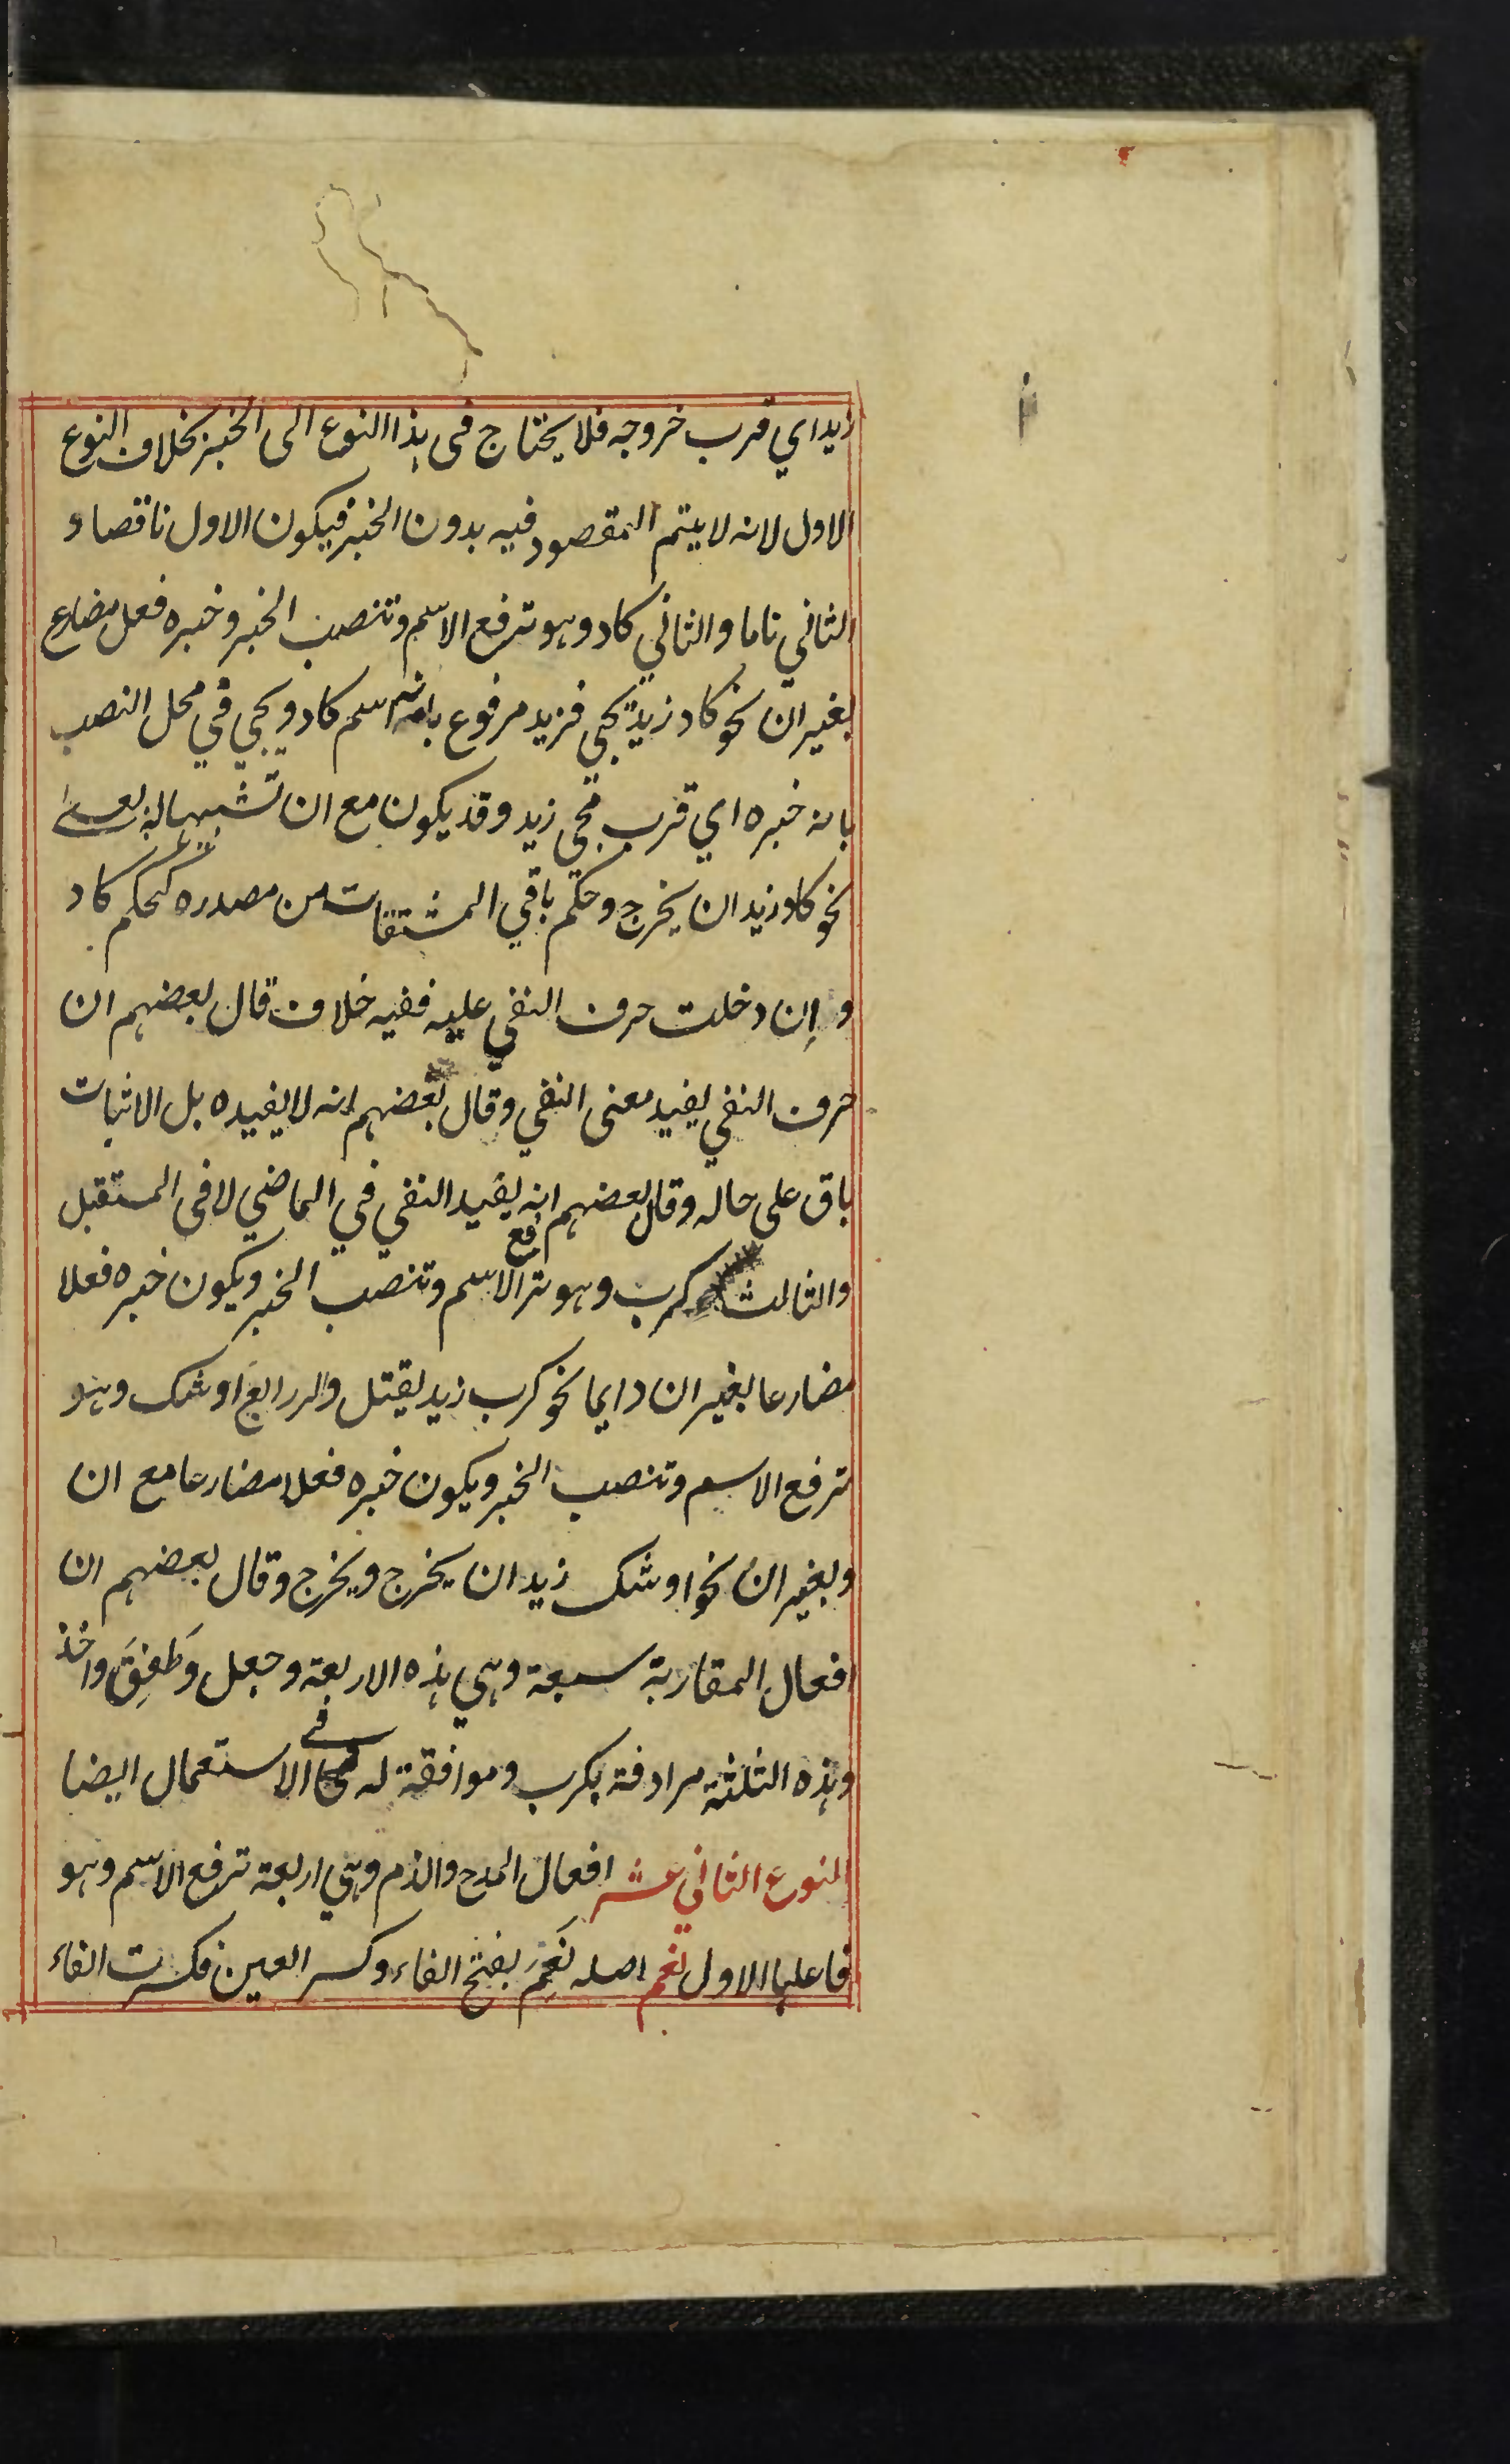 زيد اي قرب خروجه فلا يحتاج في هذا النوع الى الخبر بخلاف النوع
الاول لانه لا يتم المقصود فيه بدون الخبر فيكون الاول ناقصا و
الثاني تاما والثاني كاد وهو ترفع الاسم وتنصب الخبر وخبره فعل مضارع
بغير ان نحو كاد زيد يجي فزيد مرفوع بانه اسم كاد ويجي في محل النصب
بانه خبره اي قرب مجي زيد وقد يكون مع ان تشبيها له بعسى
نحو كاد زيد ان يخرج وحكم باقي المشتقات من مصدره كحكم كاد
و اِن دخلت حرف النفي عليه ففيه خلاف قال بعضهم ان
حرف النفي يفيد معنى النفي وقال بعضهم انه لا يفيده بل الاثبات
باق على حاله وقال بعضهم انه يفيد النفي في الماضي لا في المستقبل
والثالث كرب وهو ترفع الاسم وتنصب الخبر ويكون خبره فعلا
مضارعا بغير ان دايما نحو كرب زيد يقتل والرابع اوشك وهو
ترفع الاسم وتنصب الخبر ويكون خبره فعلا مضارعا مع ان
وبغير ان نحو اوشك زيد ان يخرج ويخرج وقال بعضهم ان
افعال المقاربة سبعة وهي هذه الاربعة وجعل وَطَفِقَ واخذ
وهذه الثلثة مرادفة بكرب وموافقة له في الاستعمال ايضا
النوع الثاني عشر افعال المدح والذم وهي اربعة ترفع الاسم وهو
فاعلها الاول نعم اصله نَعِمَ بفتح الفاء وكسر العين فكسرت الفاء